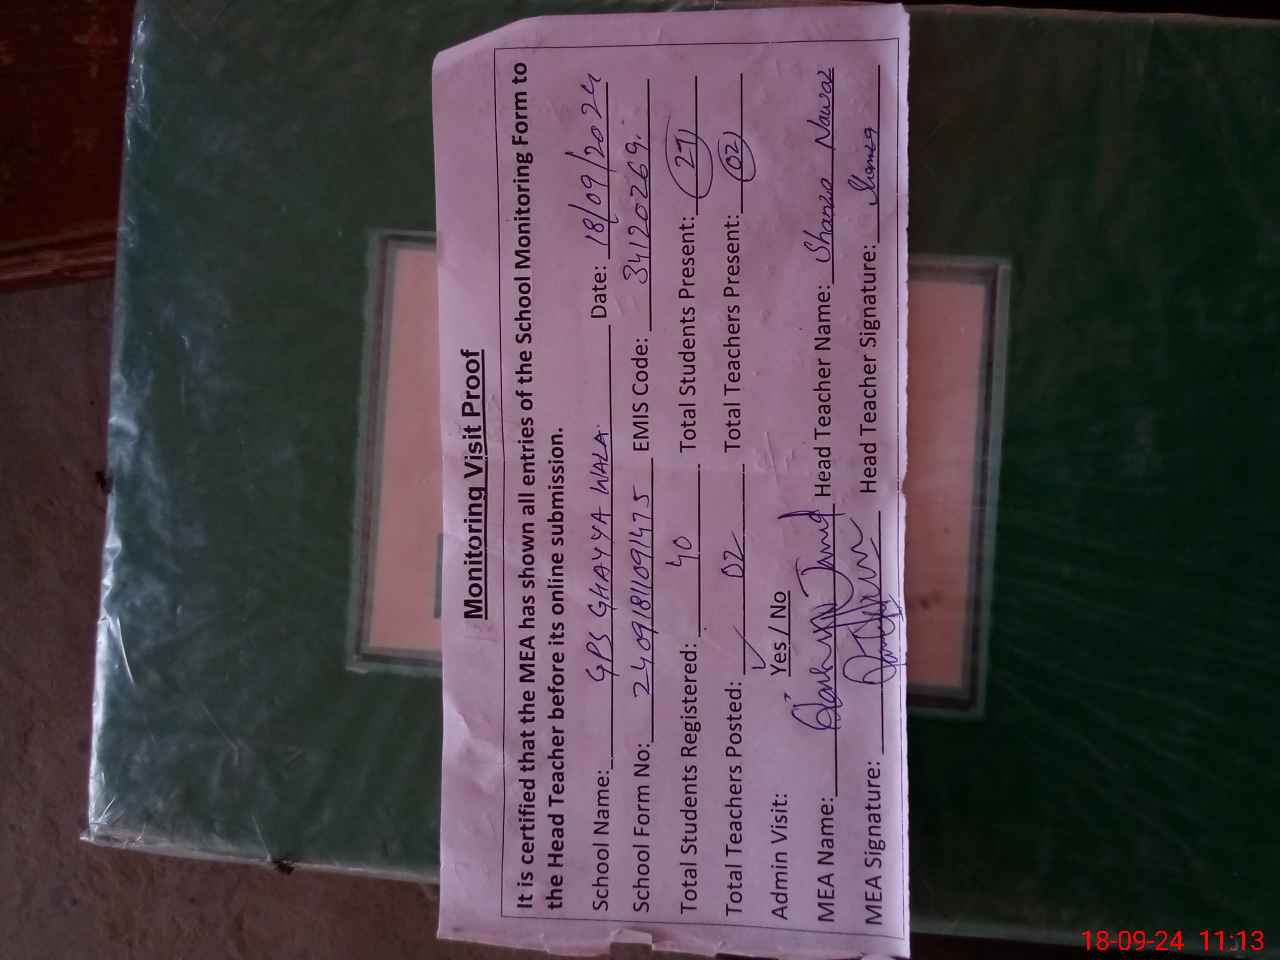 Monitoring Visit Proof
It is certified that the MEA has shown all entries of the School Monitoring Form to
the Head Teacher before its online submission.
School Name: GPS GHAYYA WALA Date: 18/09/2024
School Form No: 24091811091475 EMIS Code: 34120269.
Total Students Registered: 40 Total Students Present: 27
Total Teachers Posted: 02 Total Teachers Present: 02
Admin Visit: Yes / No
MEA Name: Head Teacher Name: Shanza Nawaz
MEA Signature: Head Teacher Signature: Shanza
18-09-24 11:13